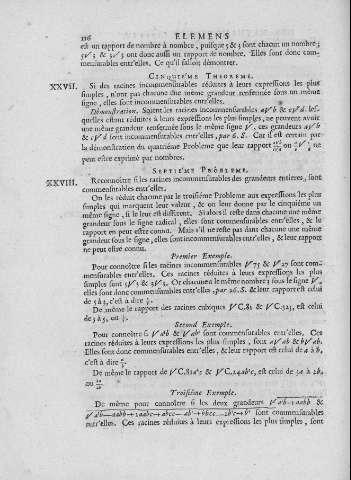 116 ELEMENS
est un rapport de nombre à nombre, puisque 5 & 3 sont chacun un nombre;
5√3 & 3√3 ont donc aussi un rapport de nombre. Elles sont donc com-
mensurables entr'elles. Ce qu'il falloit démontrer.
CINQUIÈME THEOREME.
XXVII. Si des racines incommensurables réduites à leurs expressions les plus
simples, n'ont pas chacune une même grandeur renfermée sous un même
signe, elles sont incommensurables entr'elles.
Démonstration. Soient les racines incommensurables a√b & c√d, les-
quelles étant réduites à leurs expressions les plus simples, ne peuvent avoir
une même grandeur renfermée sous le même signe √. ces grandeurs a√b
& c√d sont incommensurables entr'elles, par 6. S. Car il est certain par
la démonstration du quatrième Problème que leur rapport ne
peut estre exprimé par nombres.
SEPTIÈME PROBLEME.
XXVIII. Reconnoître si les racines incommensurables des grandeurs entieres, sont
commensurables entr'elles.
On les réduit chacune par le troisième Probleme aux expressions les plus
simples qui marquent leur valeur, & on leur donne par le cinquième un
même signe, si le leur est different. Si alors il reste dans chacune une même
grandeur sous le signe radical, elles sont commensurables entr'elles, & le
rapport en peut estre connu. Mais s'il ne reste pas dans chacune une même
grandeur sous le signe, elles sont incommensurables entr'elles, & leur rapport
ne peut estre connu.
Premier Exemple.
Pour connoître si les racines incommensurables √75 & √27 sont com-
mensurables entr'elles. Ces racines réduites à leurs expressions les plus
simples sont 5√3 & 3√3. Or chacune a le même nombre 3 sous le signe √,
elles sont donc commensurables entr'elles, par 26. S. & leur rapport est celui
de 5 à 3, c'est à dire
De même le rapport des racines cubiques √C.81 & √C., est celui
de 3 à 5, ou
Second Exemple.
Pour connoître si & sont commensurables entr'elles. Ces
racines réduites à leurs expressions les plus simples, sont a√ab & b√ab.
Elles sont donc commensurables entr'elles, & leur rapport est celui de a à b,
c'est à dire
De même le rapport de & , est celui de 3a à 2b,
ou
Troisième Exemple.
De même pour connoître si les deux grandeurs &
sont commensurables
entr'elles. Ces racines réduites à leurs expressions les plus simples, sont